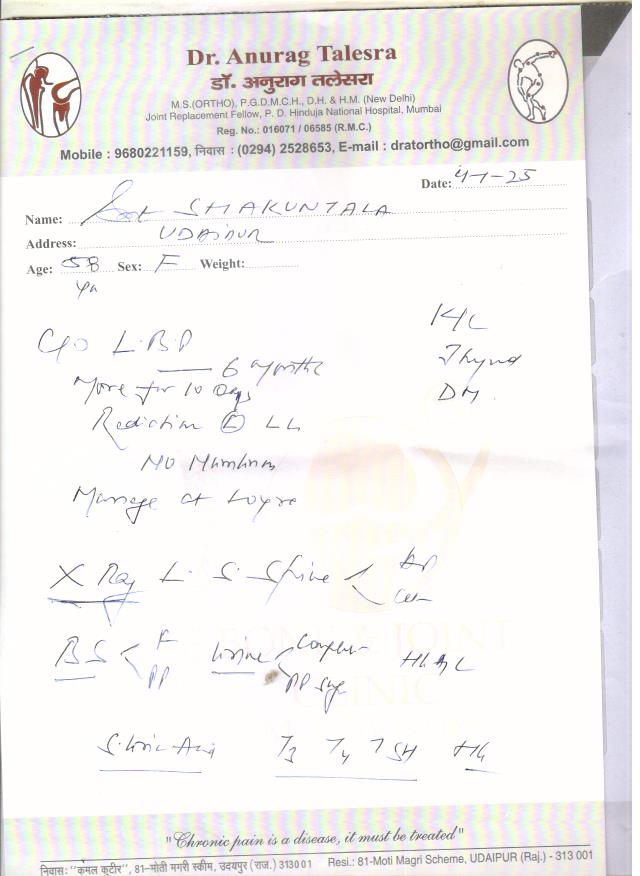 Dr. Anurag Talesra
डॉ. अनुराग तलेसरा
M.S.(ORTHO), P.G.D.M.C.H., D.H. & H.M. (New Delhi)
Joint Replacement Fellow, P. D. Hinduja National Hospital, Mumbai
Reg. No.: 016071 / 06585 (R.M.C.)
Mobile : 9680221159, निवास : (0294) 2528653, E-mail : dratortho@gmail.com
Date: 4-1-25
Name: SHAKUNTALA
Address: UDAIPUR
Age: 58 Sex: F Weight:
K/C
C/O L.B.P
6 months
Thyroid
More for 10 Days
DM
Radiation L LL
No Numbness
Massage at
X Ray L. S. Spine AP
BS F PP Urine Complete PP Sug HbA1C
S. Uric Acid T3 T4 TSH Hb
BONE & JOINT
CLINIC
"Chronic pain is a disease, it must be treated"
निवास: "कमल कूटीर", 81-मोती मगरी स्कीम, उदयपुर (राज.) 313001 Resi.: 81-Moti Magri Scheme, UDAIPUR (Raj.) - 313 001